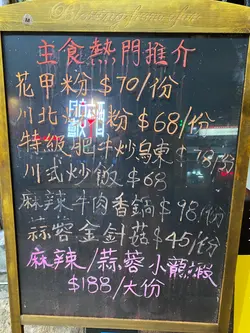 主食熱門推介
花甲粉 $70/份
川北涼粉 $68/份
特級肥牛炒烏東 $78/份
川式炒飯 $68
麻辣牛肉香鍋 $98/份
蒜蓉金針菇 $45/份
麻辣/蒜蓉小龍蝦
$188/大份